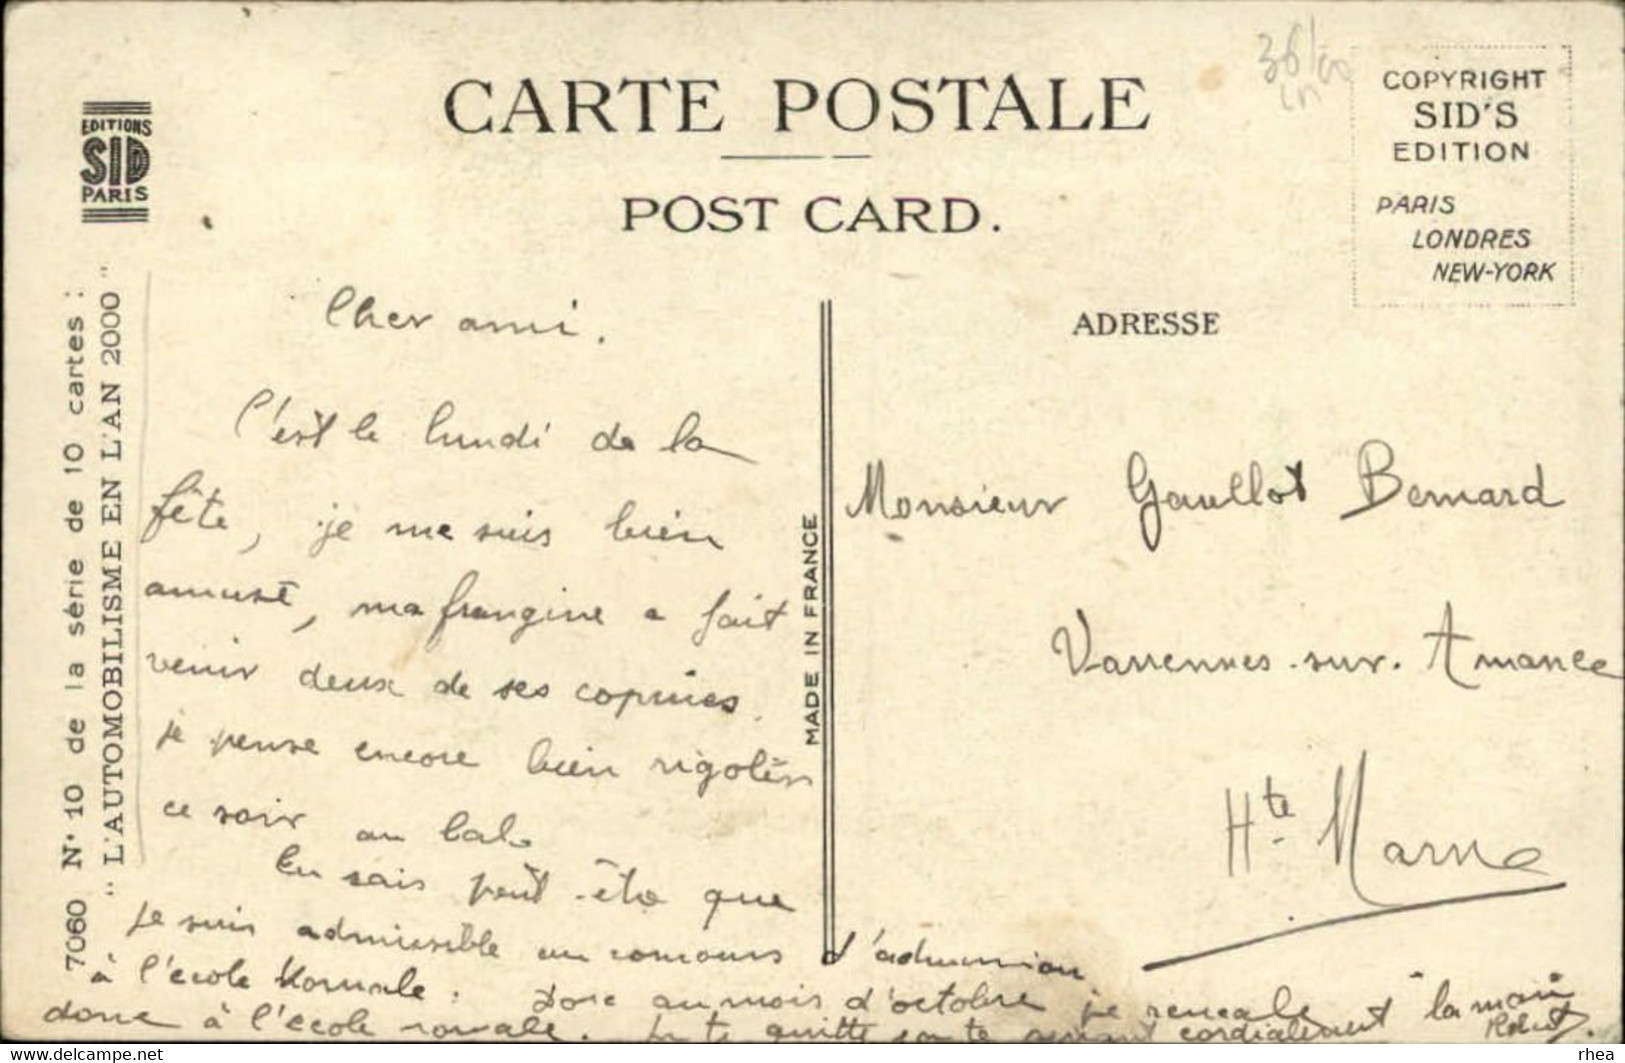 CARTE POSTALE
POST CARD.
EDITIONS
SID
PARIS
COPYRIGHT
SID'S
EDITION
PARIS
LONDRES
NEW-YORK
7060 N° 10 de la série de 10 cartes :
"L'AUTOMOBILISME EN L'AN 2000"
MADE IN FRANCE
Cher ami.
C'est le lundi de la
fête, je me suis bien
amusé, ma frangine a fait
venir deux de ses copines.
je pense encore bien rigoler
ce soir au bal.
Tu sais peut-être que
je suis admissible au concours d'admission
à l'école Normale. Donc au mois d'octobre je
donc à l'école normale. te quitte en te serrant cordialement la main
Robert
ADRESSE
Monsieur Gaullot Bernard
Varennes-sur-Amance
Hte Marne
rhea